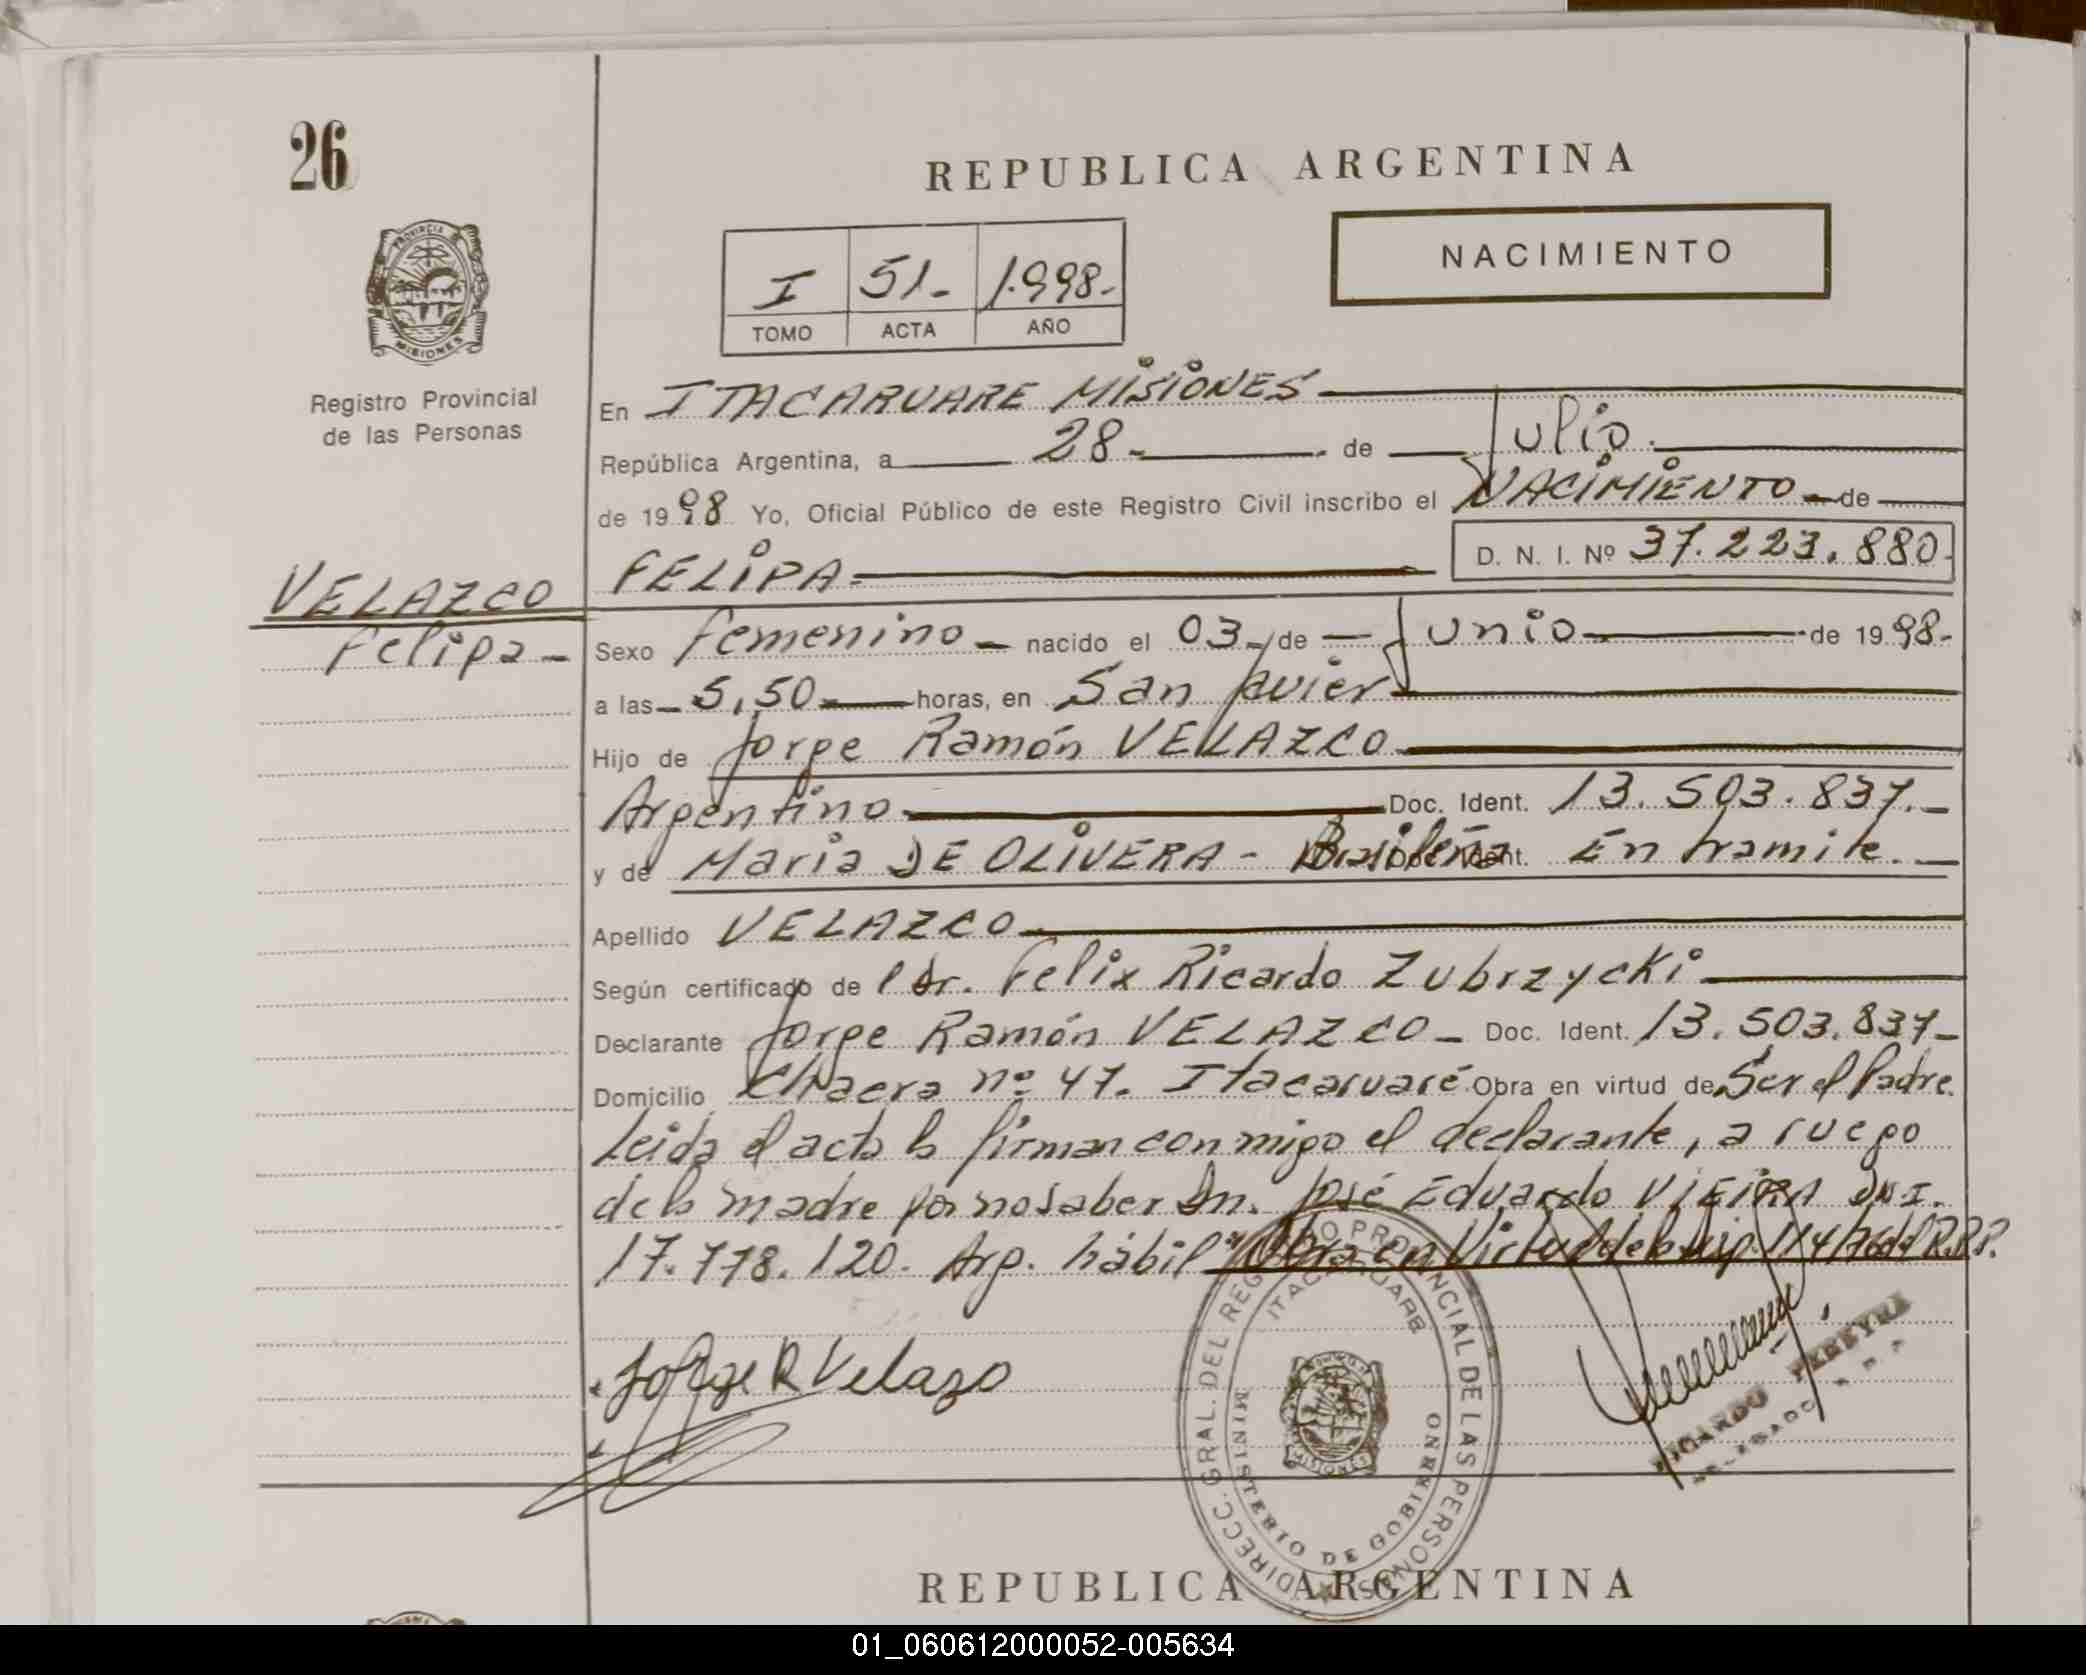 26
REPUBLICA ARGENTINA
PROVINCIA
MISIONES
I 51- 1.998.-
TOMO ACTA AÑO
NACIMIENTO
Registro Provincial
de las Personas
En ITACARUARE MISIONES
República Argentina, a 28- de Julio.
de 1998 Yo, Oficial Público de este Registro Civil inscribo el NACIMIENTO de
FELIPA- D. N. I. Nº 37.223.880-
VELAZCO
Felipa-
Sexo Femenino - nacido el 03 de Junio de 1998-
a las 5,50 horas, en San Javier
Hijo de Jorge Ramón VELAZCO
Argentino Doc. Ident. 13.503.837.-
y de María DE OLIVERA - Brasileña Doc. Ident. En tramite.-
Apellido VELAZCO
Según certificado de l dr. Felix Ricardo Zubrzycki
Declarante Jorge Ramón VELAZCO - Doc. Ident. 13.503.837-
Domicilio Chacra nº 47. Itacaruaré Obra en virtud de Ser el Padre.
Leida el acta la firman conmigo el declarante, a ruego
de la madre por no saber Dn. José Eduardo VIEIRA DNI.
17.778.120. Arg. hábil "Obra en Virtud de la
Jorge R Velazco
DIRECC. GRAL. DEL REGISTRO PROVINCIAL DE LAS PERSONAS
ITACARUARE
MISIONES
MINISTERIO DE GOBIERNO
RICARDO PEREYRA
REPUBLICA ARGENTINA
01_060612000052-005634